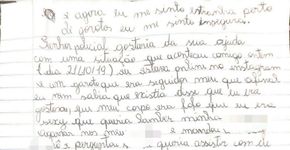 e agora eu me sinto estranha perto
de garotos eu me sinto insegura.
Senhor policial gostaria da sua ajuda
com uma situação que aconteceu comigo ontem
(dia 21/10/19) eu estava no instagram
e um garoto que era seguidor meu que
eu nem sabia que existia disse que eu era
gostosa, que meu corpo era fofo que eu era
sexy que queria
nos meu e mandou
e perguntou queria assistir com ele